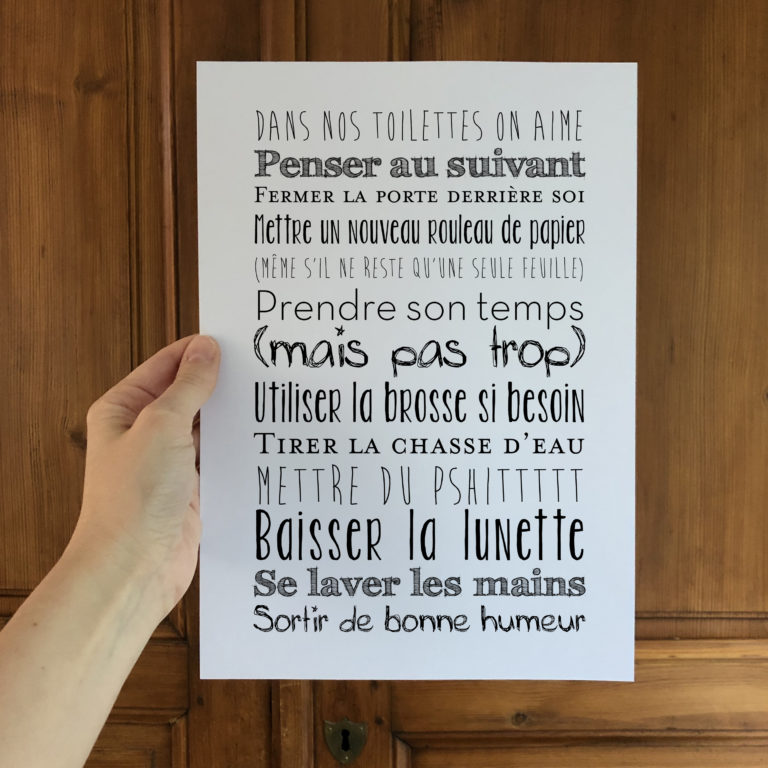 DANS NOS TOILETTES ON AIME
Penser au suivant
FERMER LA PORTE DERRIÈRE SOI
Mettre un nouveau rouleau de papier
(MÊME S'IL NE RESTE QU'UNE SEULE FEUILLE)
Prendre son temps
(mais pas trop)
Utiliser la brosse si besoin
TIRER LA CHASSE D'EAU
METTRE DU PSHITTTTT
Baisser la lunette
Se laver les mains
Sortir de bonne humeur